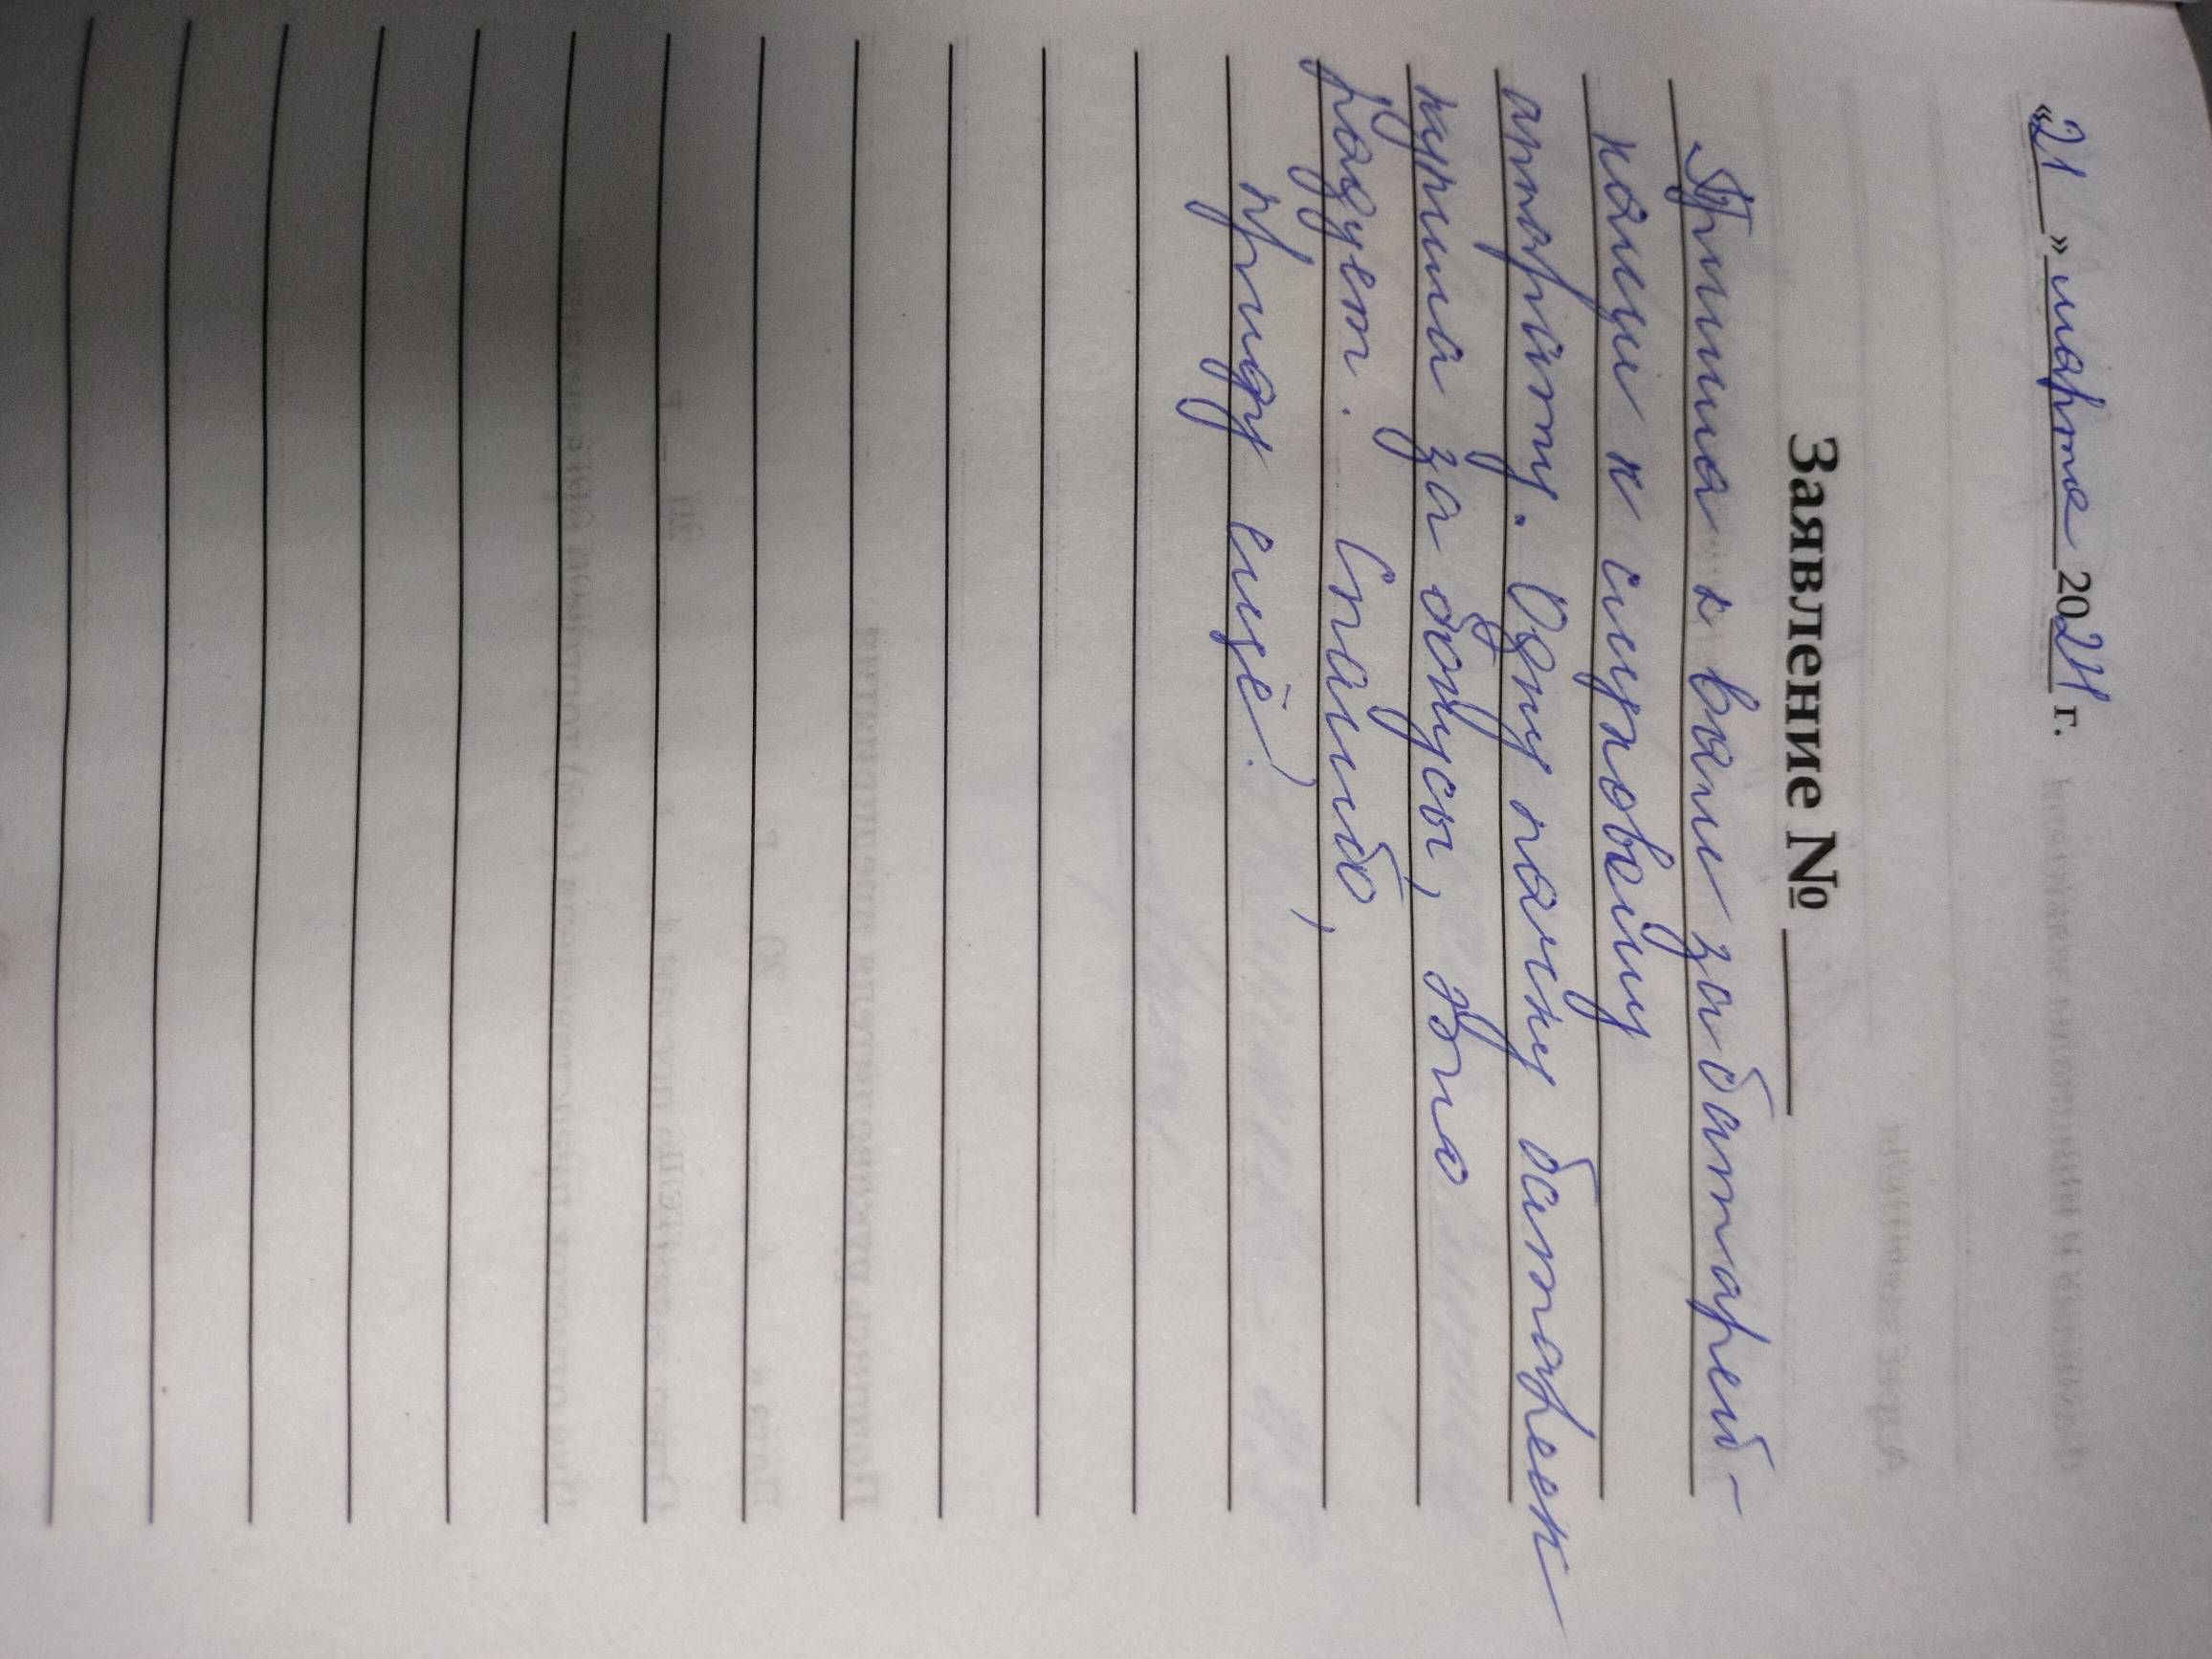 «21» марта 2021 г.
Заявление №
Пришла к вам за батарей-
ками к слуховому
аппарату. Одну пачку батареек
купила за бонусы, это
радует. Спасибо,
приду ещё!